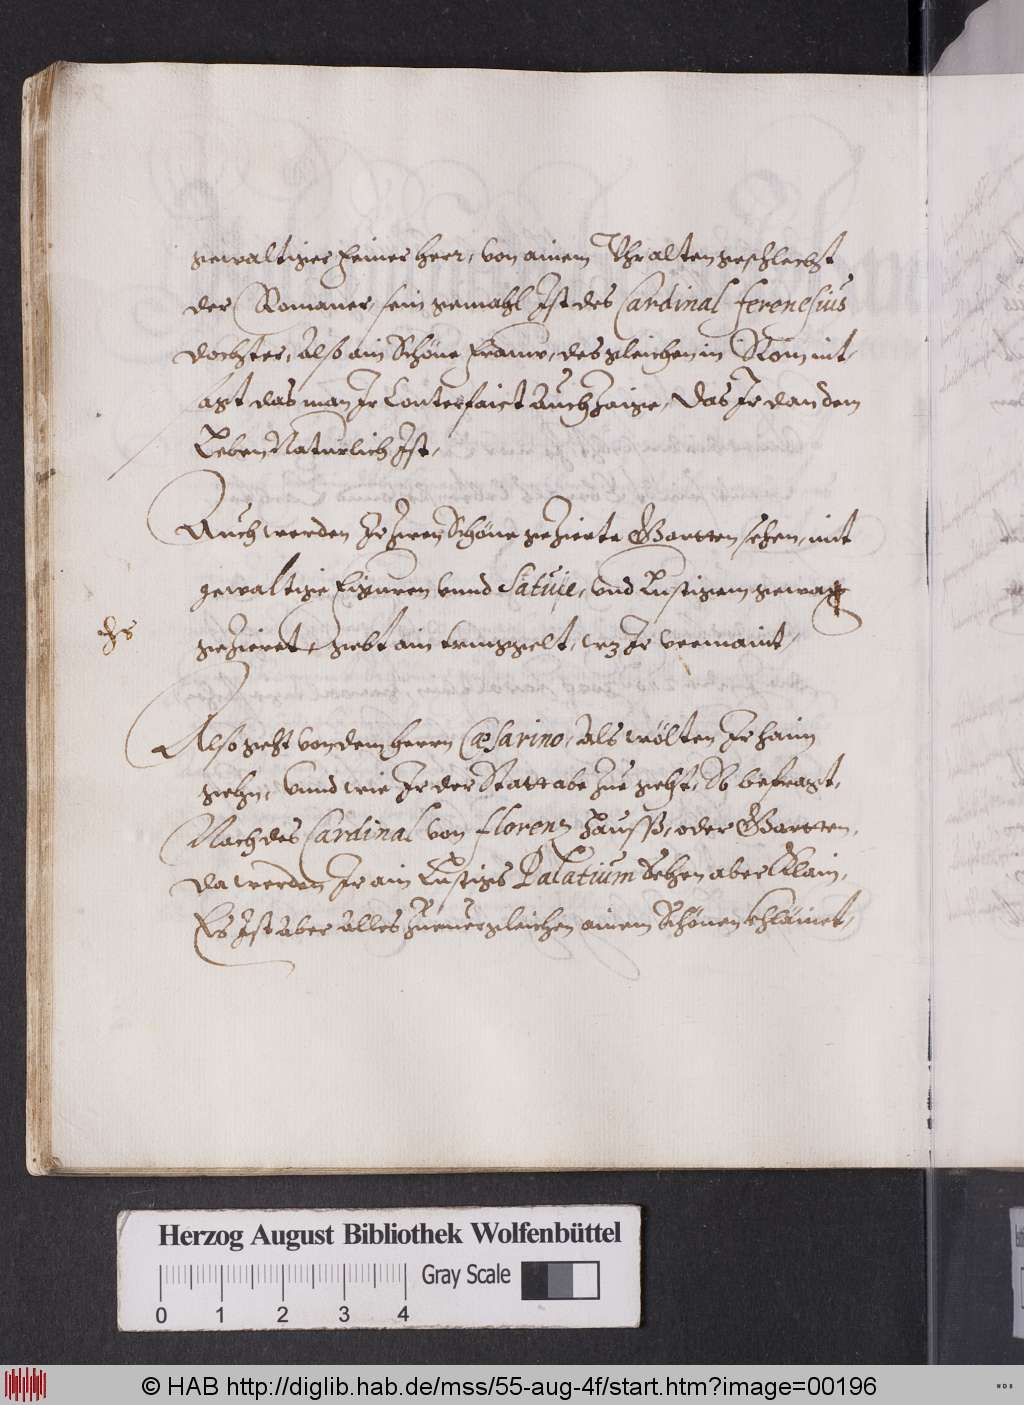 gewaltiger feiner herr, von ainem Vhralten geschlecht
der Romaner, sein gemahl Ist des Cardinal ferenesius
dochter, also ain Schöne Frauw, desgleichen in Rom nit,
das man Ir Conterfaict Auch Zaige, Das Ir dan dem
Leben Naturlich Ist,
Auch werden Ir Ihren Schöne gezierte Gartten sehen, mit
gewaltige Figuren vnnd Satuie, vnd Lustigem gewax
geziert, gebt ain trinckgelt, wz Ir vermaint,
Also geht von dem herrn Cæsarino, Als wölten Ir haim
gehn, Vnnd wie Ir der Statt abe Zue geht, So befragt,
Nach des Cardinal von florenz Hauss, oder Gartten,
Da werden Ir ain Lustigs Palatium Sehen aber Klain,
Es Ist aber Alles Zuuergleichen ainem Schönen
Herzog August Bibliothek Wolfenbüttel
Gray Scale
0 1 2 3 4
© HAB http://diglib.hab.de/mss/55-aug-4f/start.htm?image=00196